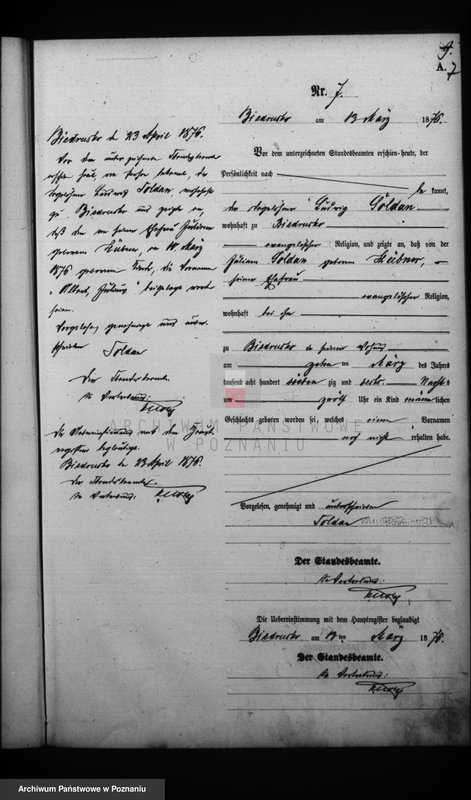 9.
A. 7
Nr. 7.
Biedrusko am 13 März 1876.
Vor dem unterzeichneten Standesbeamten erschien heute, der
Persönlichkeit nach
be kannt,
der Tagelöhner Ludwig Goldan
wohnhaft zu Biedrusko
evangelischer Religion, und zeigte an, daß von der
Juliane Goldan geborene Heibner,
seiner Ehefrau
evangelischer Religion,
wohnhaft bei ihm
zu Biedrusko in seiner Wohnung
am zehn ten März des Jahres
tausend acht hundert sieben zig und sechs Nachts
um zwölf Uhr ein Kind männ lichen
Geschlechts geboren worden sei, welches einen Vornamen
noch nicht erhalten habe.
Vorgelesen, genehmigt und unterschrieben
Toldan
Der Standesbeamte.
In Vertretung:
Die Uebereinstimmung mit dem Hauptregister beglaubigt
Biedrusko am 13 ten März 1876.
Der Standesbeamte.
In Vertretung:
Biedrusko d 23 April 1876.
Vor dem unterzeichneten Standesbeamten
der
Tagelöhner Ludwig Toldan wohnhaft
zu Biedrusko und zeigte an,
daß dem von seiner Ehefrau Juliane
geborenen Hübner, am 10 März
1876 geborenen Kind, die Vornamen
"Albert, Ludwig" beigelegt worden
seien.
Vorgelesen, genehmigt und unter
schrieben
Toldan
Der Standesbeamte.
In Vertretung:
Die Uebereinstimmung mit dem Haupt
register beglaubigt.
Biedrusko d 23 April 1876.
Der Standesbeamte.
In Vertretung:
ARCHIWUM PAŃSTWOWE
W POZNANIU
Archiwum Państwowe w Poznaniu